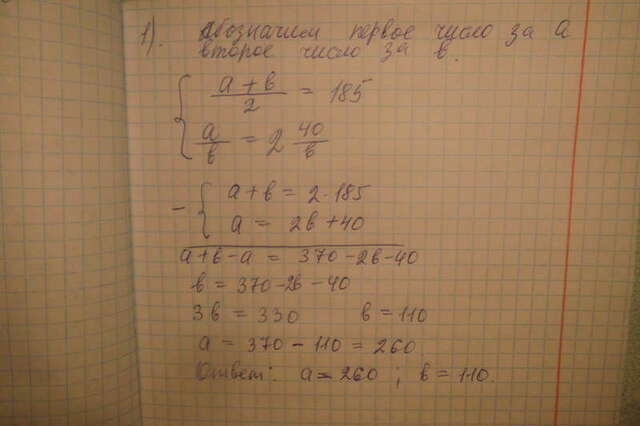 1). Обозначим первое число за a
второе число за в.
a + в / 2 = 185
a / в = 2 40/в
- a + в = 2 · 185
a = 2в + 40
a + в - a = 370 - 2в - 40
в = 370 - 2в - 40
3в = 330 в = 110
a = 370 - 110 = 260
Ответ: a = 260 ; в = 110.